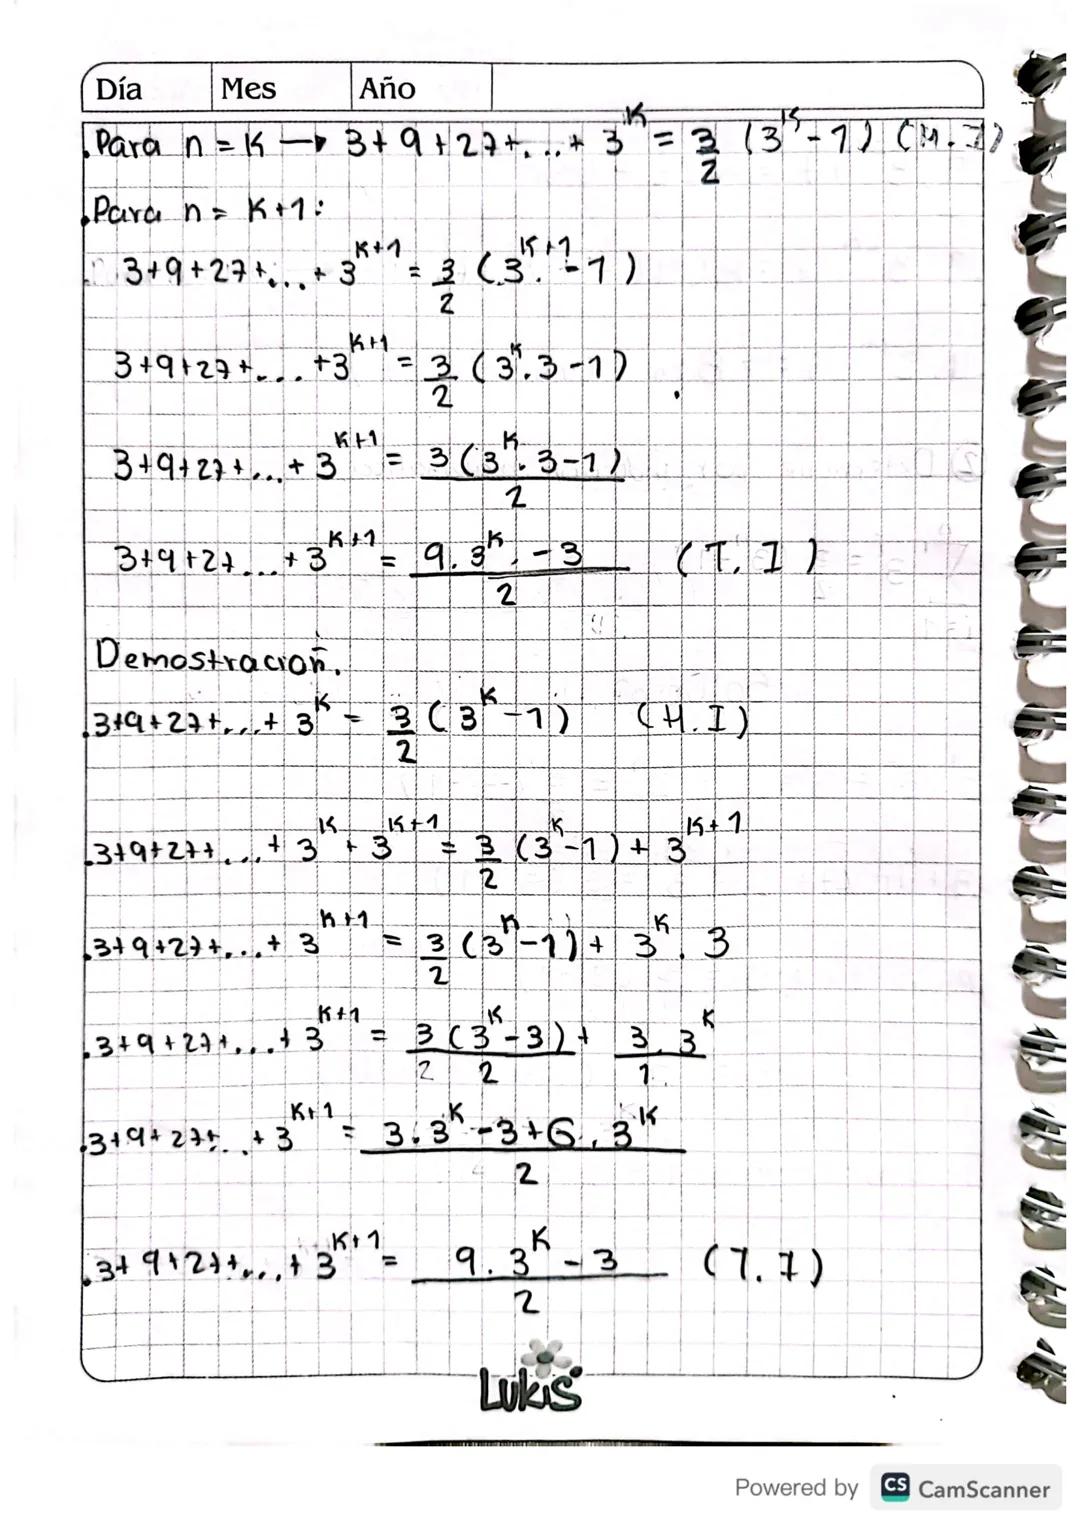 Día Mes Año
Para n = K → 3+9+27+...+ 3^K = 3/2 (3^K - 1) (H.I)
Para n = K+1:
3+9+27+...+ 3^K+1 = 3/2 (3^K+1 - 1)
3+9+27+... +3^K+1 = 3/2 (3^K.3-1)
3+9+27+...+ 3^K+1 = 3(3^K.3-1)/2
3+9+27...+3^K+1 = 9.3^K.-3/2 (T.I)
Demostración.
3+9+27+...+ 3^K = 3/2 (3^K-1) (H.I)
3+9+27+...+ 3^K + 3^K+1 = 3/2 (3^K-1)+ 3^K+1
3+9+27+...+ 3^K+1 = 3/2 (3^K-1)+ 3^K.3
3+9+27+...+ 3^K+1 = 3(3^K-3)/2 2 + 3.3^K/1.
3+9+27+...+3^K+1 = 3.3^K-3+6.3^K/2
3+9+27+...+3^K+1 = 9.3^K-3/2 (T.I)
Lukis
Powered by CS CamScanner